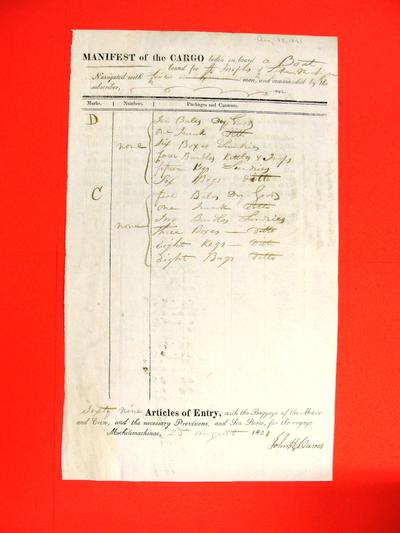 Aug 25, 1821
MANIFEST of the CARGO laden on board a Boat
bound for St Josephs
Navigated with men, and commanded by the
subscriber,
Marks. Numbers. Packages and Contents.
D
none
Bales Dry Goods
one Trunk Ditto
Six Boxes Sundries
four Bundles Kettles & Traps
fifteen Kegs Sundries
Six Bags Ditto
C
none
five Bales Dry Goods
one Trunk Ditto
Two Bundles Sundries
three Boxes — Ditto
Eight Kegs — Ditto
Eight Bags Ditto
Sixty nine Articles of Entry, with the Baggage of the Master
and Crew, and the necessary Provisions, and Sea Stores, for the voyage
Michilimackinac, 25 August 1821
John